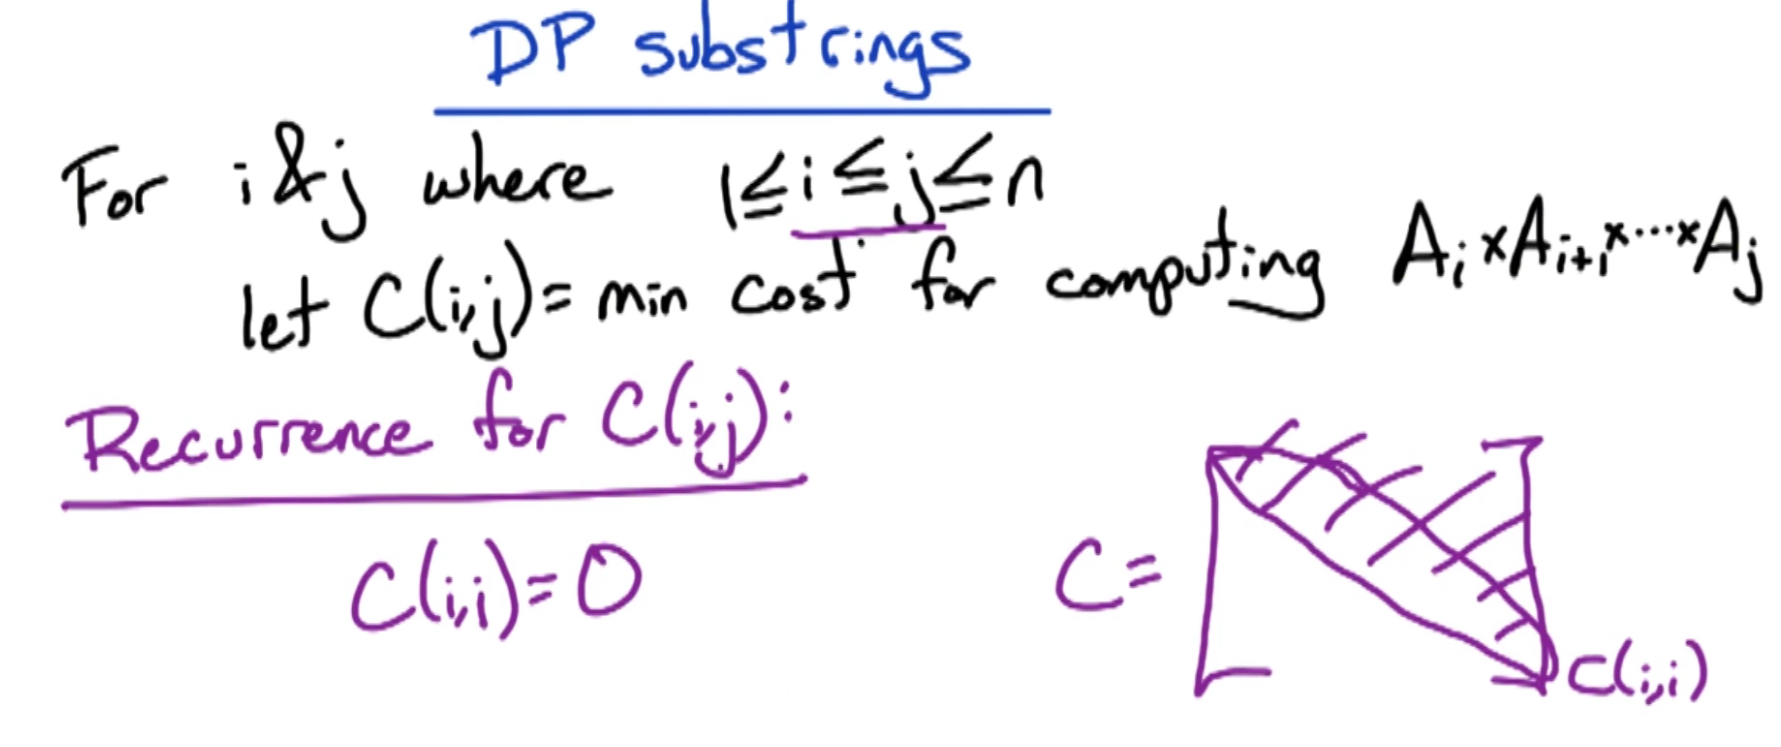 DP substrings
For i & j where 1≤i≤j≤n
let C(i,j)= min cost for computing Aᵢ×Aᵢ₊₁×···×Aⱼ
Recurrence for C(i,j):
C(i,i)=0
C=
C(i,i)